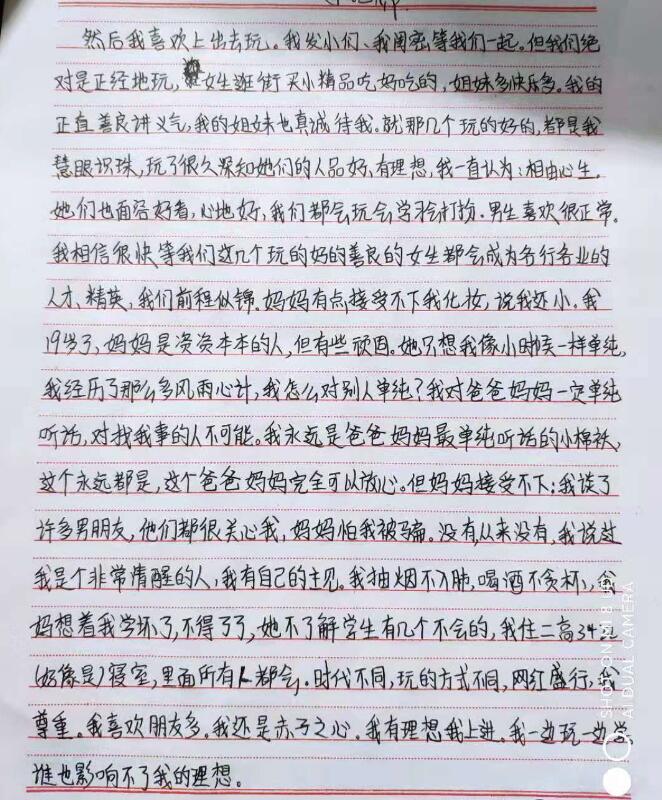 然后我喜欢上出去玩。我发小们、我闺密等我们一起。但我们绝
对是正经地玩，女生逛街买小精品吃好吃的，姐妹多快乐多。我的
正直善良讲义气，我的姐妹也真诚待我。就那几个玩的好的，都是我
慧眼识珠，玩了很久深知她们的人品好，有理想，我一直认为：相由心生。
她们也面容好看，心地好，我们都会玩会学习会打扮。男生喜欢很正常。
我相信很快等我们这几个玩的好的善良的女生都会成为各行各业的
人才、精英，我们前程似锦。妈妈有点接受不下我化妆，说我还小。我
19岁了，妈妈是资资本本的人，但有些顽固。她只想我像小时候一样单纯，
我经历了那么多风雨心计，我怎么对别人单纯？我对爸爸妈妈一定单纯
听话，对找我事的人不可能。我永远是爸爸妈妈最单纯听话的小棉袄，
这个永远都是，这个爸爸妈妈完全可以放心。但妈妈接受不下：我谈了
许多男朋友，他们都很关心我，妈妈怕我被骗。没有，从来没有，我说过
我是个非常清醒的人，我有自己的主见。我抽烟不入肺，喝酒不贪杯，我
妈想着我学坏了，不得了了，她不了解学生有几个不会的，我住二高34
（好像是）寝室，里面所有人都会，时代不同，玩的方式不同，网红盛行，我
尊重。我喜欢朋友多。我还是赤子之心。我有理想我上进。我一边玩一边学
谁也影响不了我的理想。
SHOT ON MI 8 SE
AI DUAL CAMERA